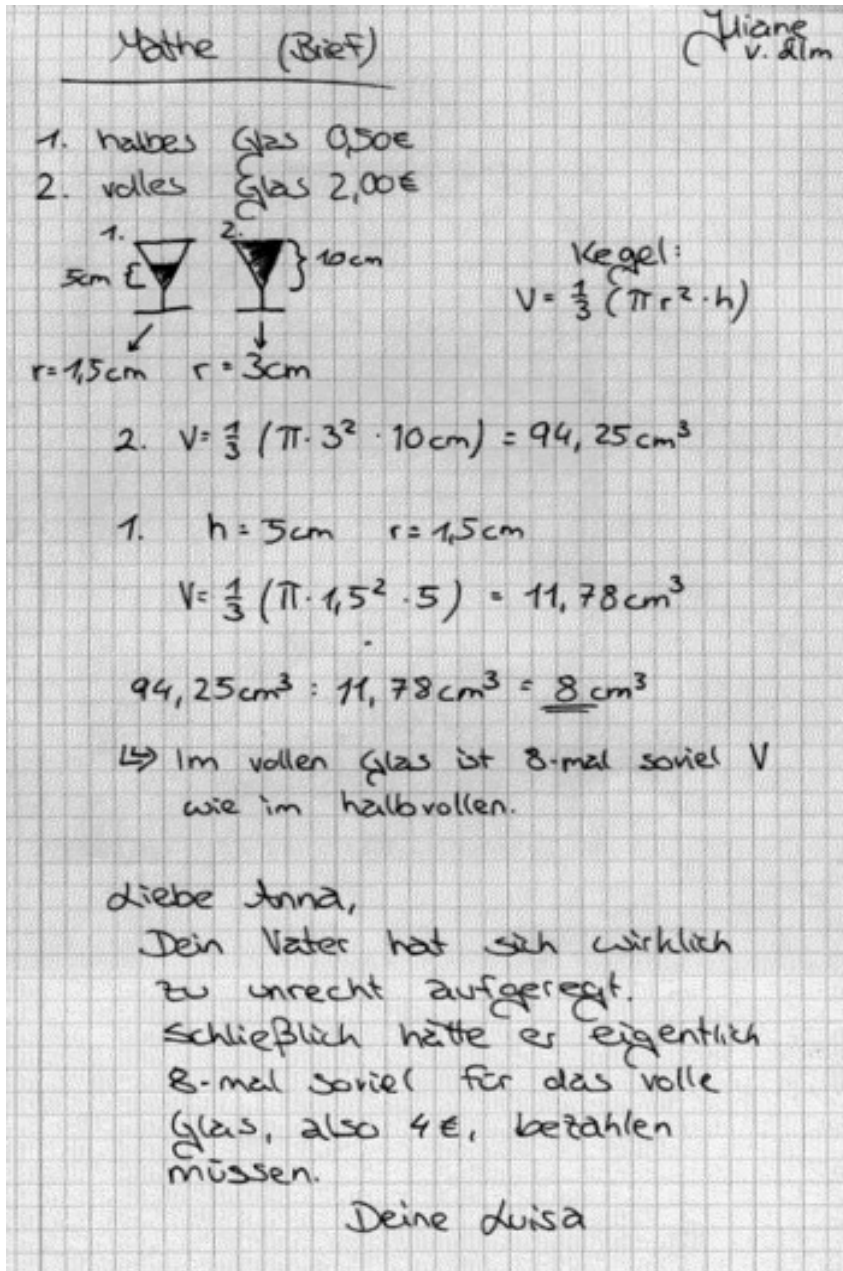 Mathe (Brief)
Juliane
v. Alm
1. halbes Glas 0,50€
2. volles Glas 2,00€
1. 2.
5cm { } 10cm
Kegel:
V = 1/3 (π r² · h)
r = 1,5cm r = 3cm
2. V = 1/3 (π · 3² · 10cm) = 94,25cm³
1. h = 5cm r = 1,5cm
V = 1/3 (π · 1,5² · 5) = 11,78cm³
94,25cm³ : 11,78cm³ = 8 cm³
↳ Im vollen Glas ist 8-mal soviel V
wie im halbvollen.
Liebe Anna,
Dein Vater hat sich wirklich
zu unrecht aufgeregt.
Schließlich hätte er eigentlich
8-mal soviel für das volle
Glas, also 4€, bezahlen
müssen.
Deine Luisa